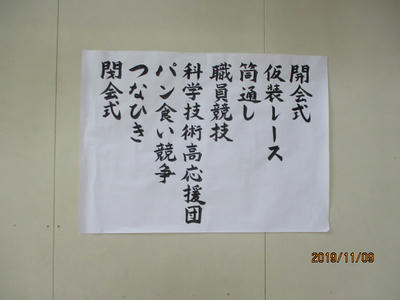 開会式
仮装レース
筒通し
職員競技
科学技術高応援団
パン食い競争
つなひき
閉会式
2019/11/09